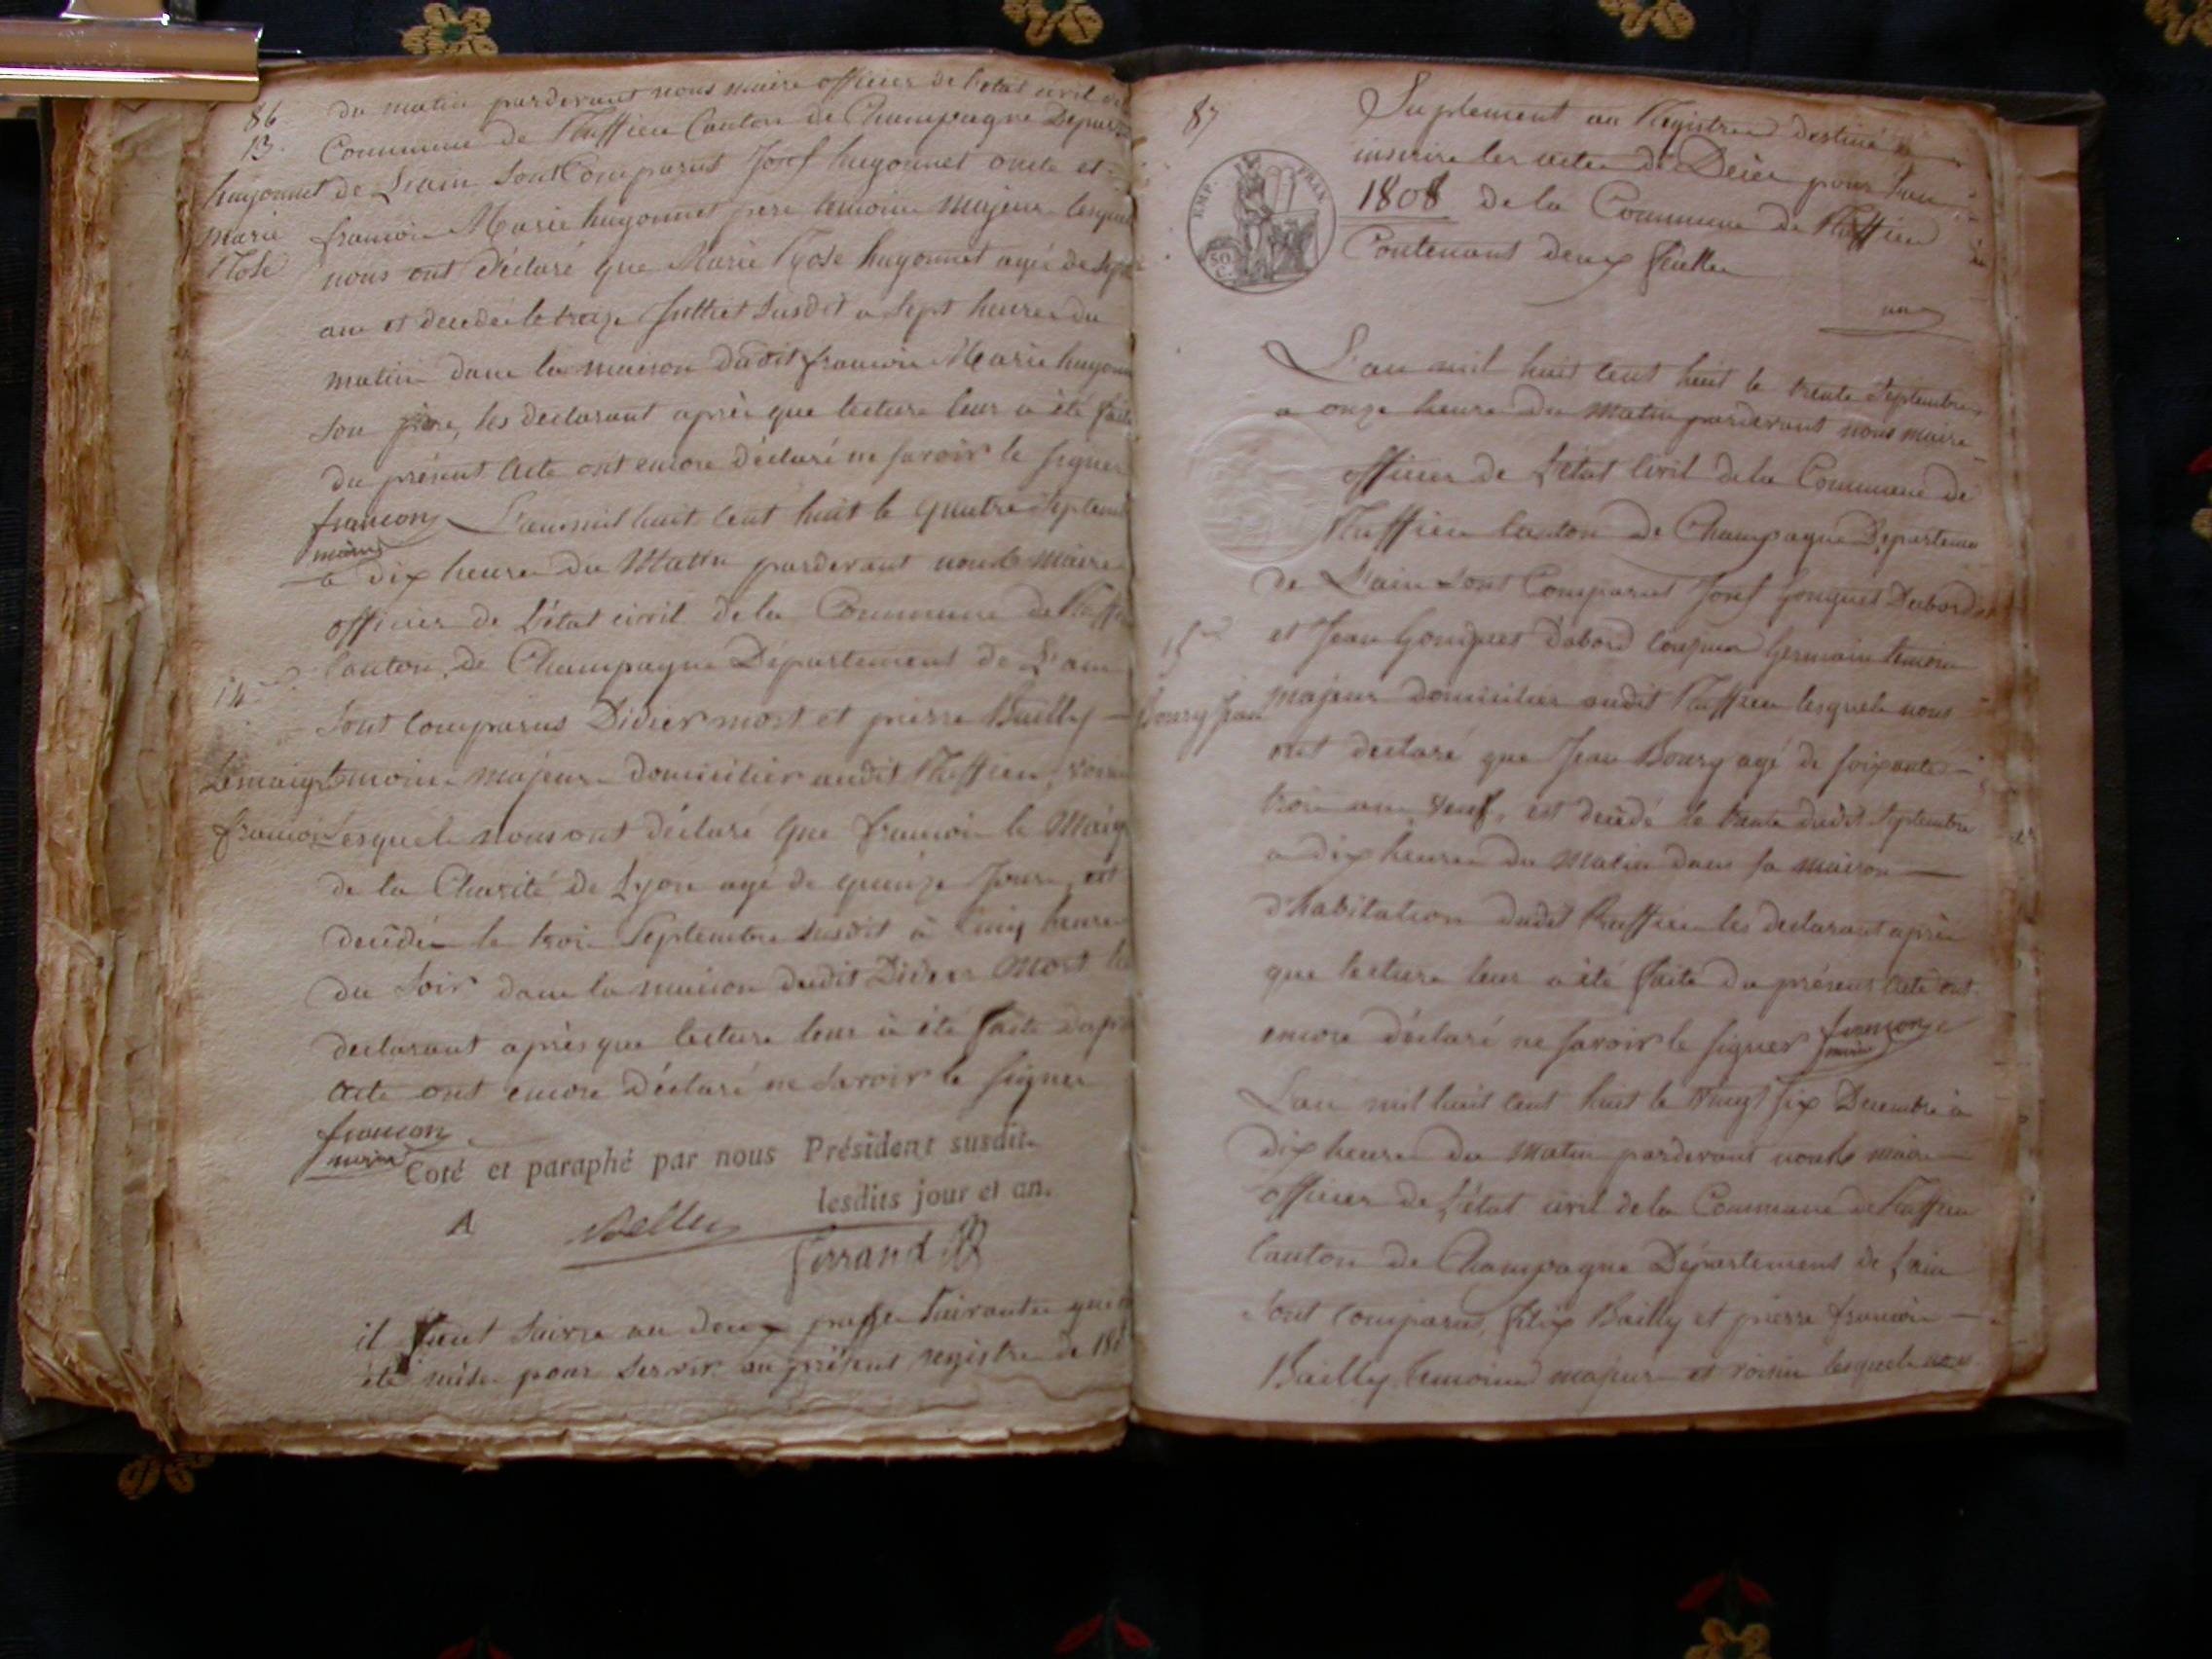 86
13.
hugonnet
marie
Rose
du matin pardevant nous maire officier de l'état civil de
Commune de Ruffieu Canton de Champagne Depar
de L'ain sont Comparus Josef hugonnet oncle et
francois Marie hugonnet pere temoins majeurs lesquels
nous ont déclaré que Marie Rose hugonnet agée de sept
ans est decedée le treize Juillet susdit a sept heures du
matin dans la maison dudit francois Marie hugonn
son père, les declarant après que lecture leur a été faite
du présent acte ont encore déclaré ne savoir le signer
francon
maire
L'an mil huit cent huit le quatre Septemb
a dix heures du Matin pardevant nous maire
officier de L'état civil de la Commune de Ruffieu
Canton de Champagne Département de L'ain
14
Sont Comparus Didier most et pierre Bailly
Lemaigre
francois
temoins majeurs domiciliés audit Ruffieu, voisins
Lesquels nous ont déclaré que francois le Maig
de la Charité de Lyon agé de quinze Jours, est
decédé le trois Septembre susdit à Cinq heures
du Soir dans la maison dudit Didier Most les
declarant après que lecture leur à été faite du pr
acte ont encore déclaré ne savoir le signer
francon
maire
Coté et paraphé par nous Président susdit.
lesdits jour et an.
A
ferrand
il faut suivre au deux suivantes qui
été mises pour servir au présent registre de 180
87
Suplement au Registre destiné a
inscrire les actes de Décès pour l'an
1808 de la Commune de Ruffieu
Contenant deux feuilles
EMP. FRAN.
50
C.
un
L'an mil huit cent huit le trente Septembre
a onze heures du matin pardevant nous maire
officier de L'état Civil de la Commune de
Ruffieu Canton de Champagne Departeme
de L'ain sont Comparus Josef Gonguet Dabord
15
et Jean Gonguet Dabord Cousins Germains temoins
Bourg Jean
majeurs domiciliés audit Ruffieu lesquels nous
ont declaré que Jean Bourg agé de soixante
trois ans, veuf, est decédé le trente dudit Septembre
a dix heures du Matin dans sa maison
d'habitation dudit Ruffieu les declarant après
que lecture leur a été faite du présent acte ont
encore déclaré ne savoir le signer francon
maire
L'an mil huit cent huit le vingt six Decembre à
dix heures du Matin pardevant nous maire
officier de L'état civil de la Commune de Ruffieu
Canton de Champagne Département de L'ain
Sont comparus, félix Bailly et pierre francois
Bailly temoins majeurs et voisins lesquels nous